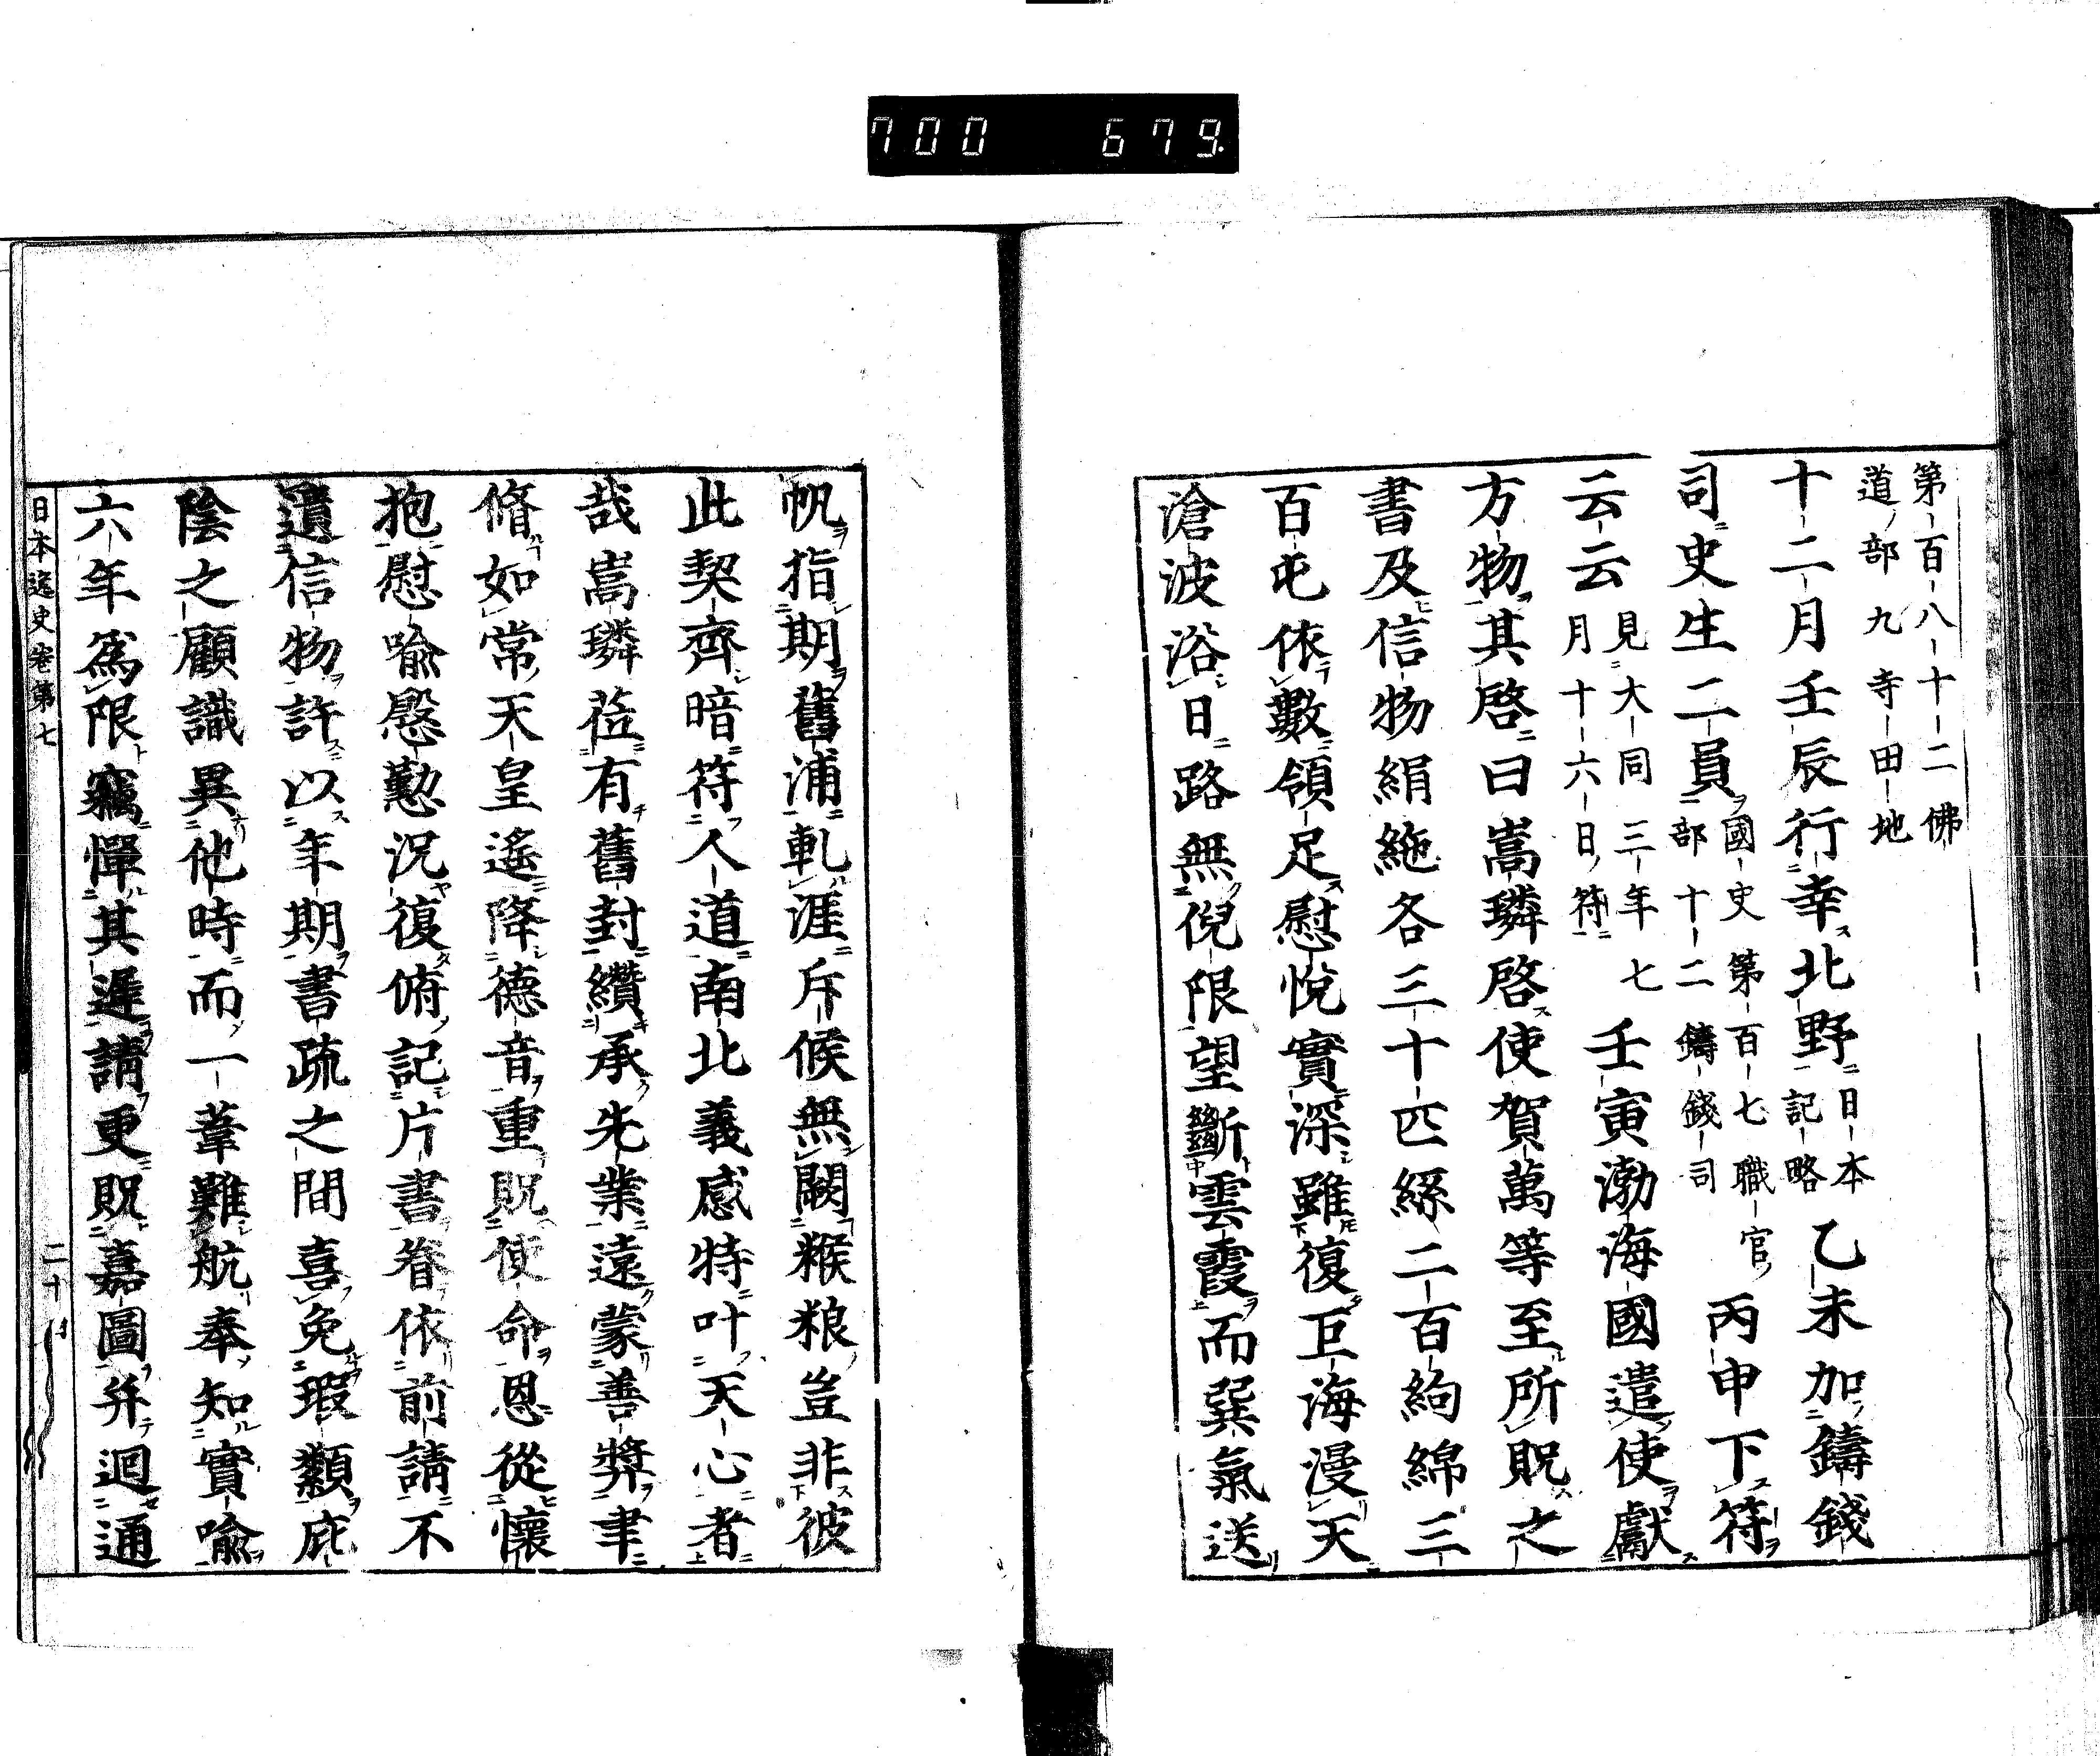 700 679.
第百八十二佛
道部九寺田地
十二月壬辰行幸北野日本記略乙未加鑄錢
司史生二員國史第百七職官部十二鑄錢司丙申下符
云云見大同三年七月十六日符壬寅渤海國遣使獻
方物其啓曰嵩璘啓使賀萬等至所貺之
書及信物絹絁各三十匹絲二百絇綿三
百屯依數領足慰悅實深雖復巨海漫天
滄波浴日路無倪限望斷雲霞而巽氣送
帆指期舊浦軋涯斥候無闕糇粮豈非彼
此契齊暗符人道南北義感特叶天心者
哉嵩璘莅有舊封纘承先業遠蒙善奬聿
脩如常天皇遙降德音重貺使命恩從懷
抱慰喻慇懃況復俯記片書眷依前請不
遺信物許以年期書疏之間喜免瑕纇庇
陰之顧識異他時而一葦難航奉知實喻
六年爲限竊憚其遲請更貺嘉圖幷迴通
日本逸史卷第七
二十